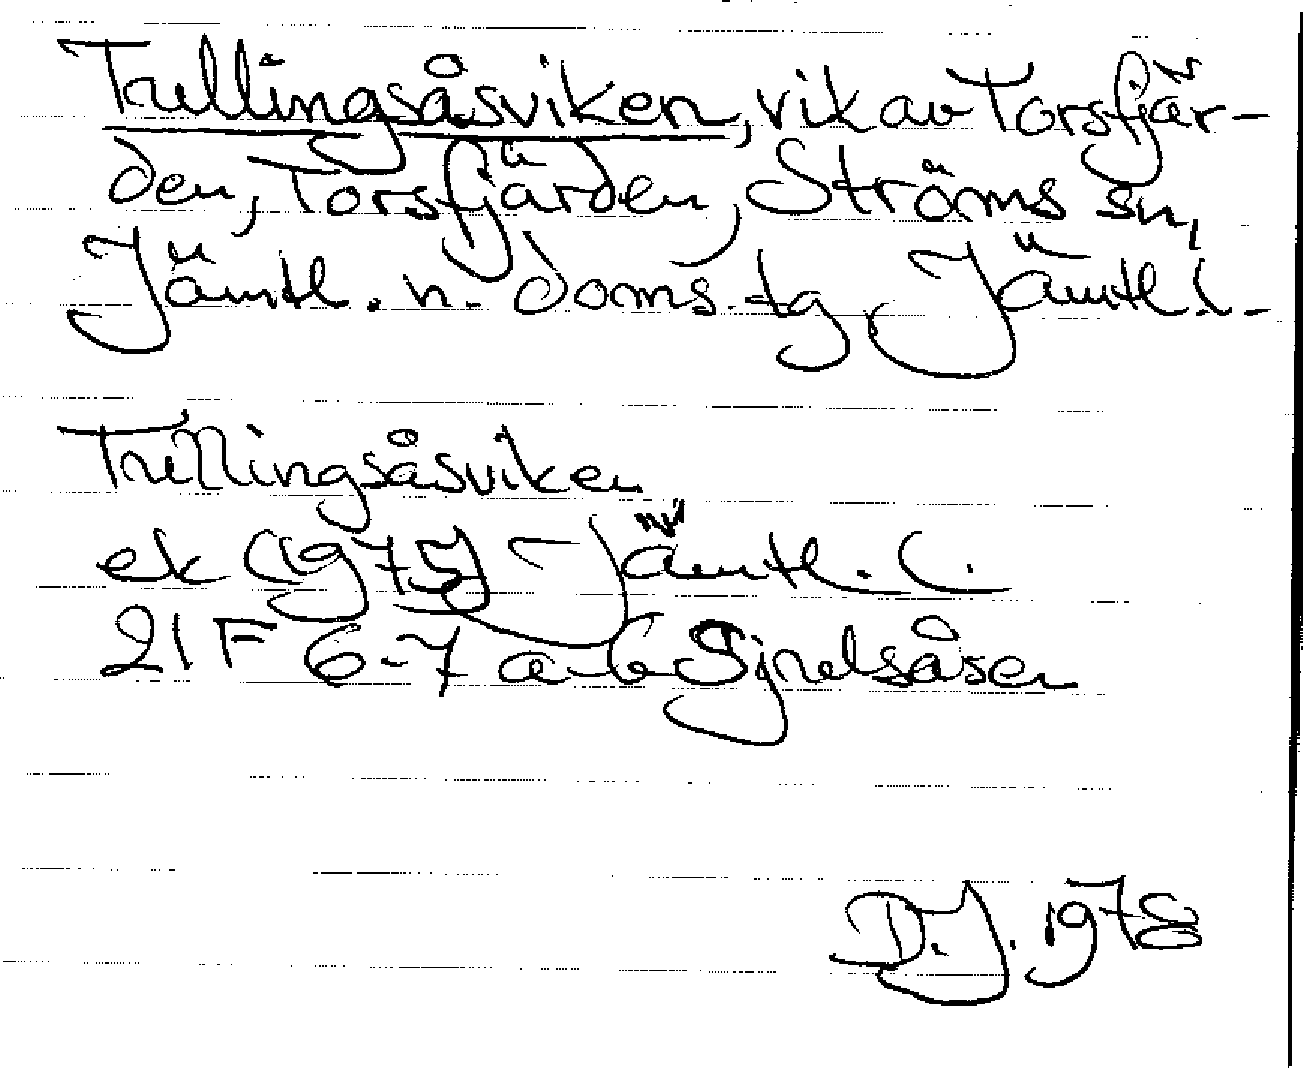 Trillingsåsviken, vik av Torsfjär-
den, Torsfjärden, Ströms sn,
Jämtl. n. doms. tg, Jämtl. l.
Trillingsåsviken
ek (1975) Jämtl. l.
21 F 6-7 a-b Gjnelsåsen
D.J. 1978